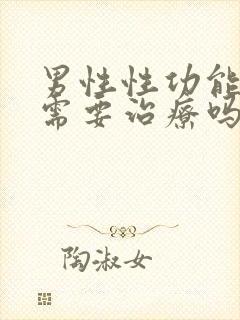 男性性功能
需要治疗吗
陶淑女